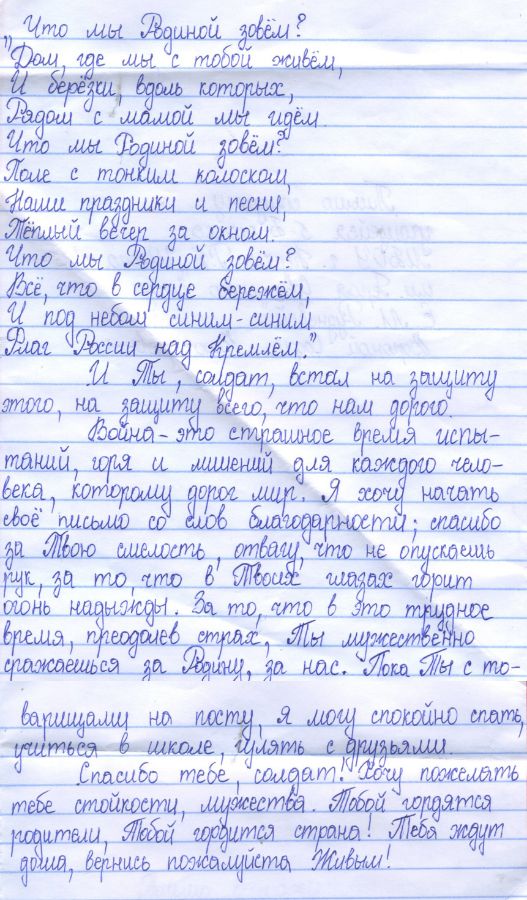 Что мы Родиной зовём?
„Дом, где мы с тобой живём,
И берёзки, вдоль которых,
Рядом с мамой мы идём.
Что мы Родиной зовём?
Поле с тонким колоском,
Наши праздники и песни,
Тёплый вечер за окном.
Что мы Родиной зовём?
Всё, что в сердце бережём,
И под небом синим-синим
Флаг России над Кремлём."
И Ты, солдат, встал на защиту
этого, на защиту всего, что нам дорого.
Война - это страшное время испы-
таний, горя и лишений для каждого чело-
века, которому дорог мир. Я хочу начать
своё письмо со слов благодарности; спасибо
за Твою смелость, отвагу, что не опускаешь
рук, за то, что в Твоих глазах горит
огонь надыжды. За то, что в это трудное
время, преодолев страх, Ты мужественно
сражаешься за Родину, за нас. Пока Ты с то-
варищами на посту, я могу спокойно спать,
учиться в школе, гулять с друзьями.
Спасибо тебе, солдат! Хочу пожелать
тебе стойкости, мужества. Тобой гордятся
родители, Тобой гордится страна! Тебя ждут
дома, вернись пожалуйста Живым!